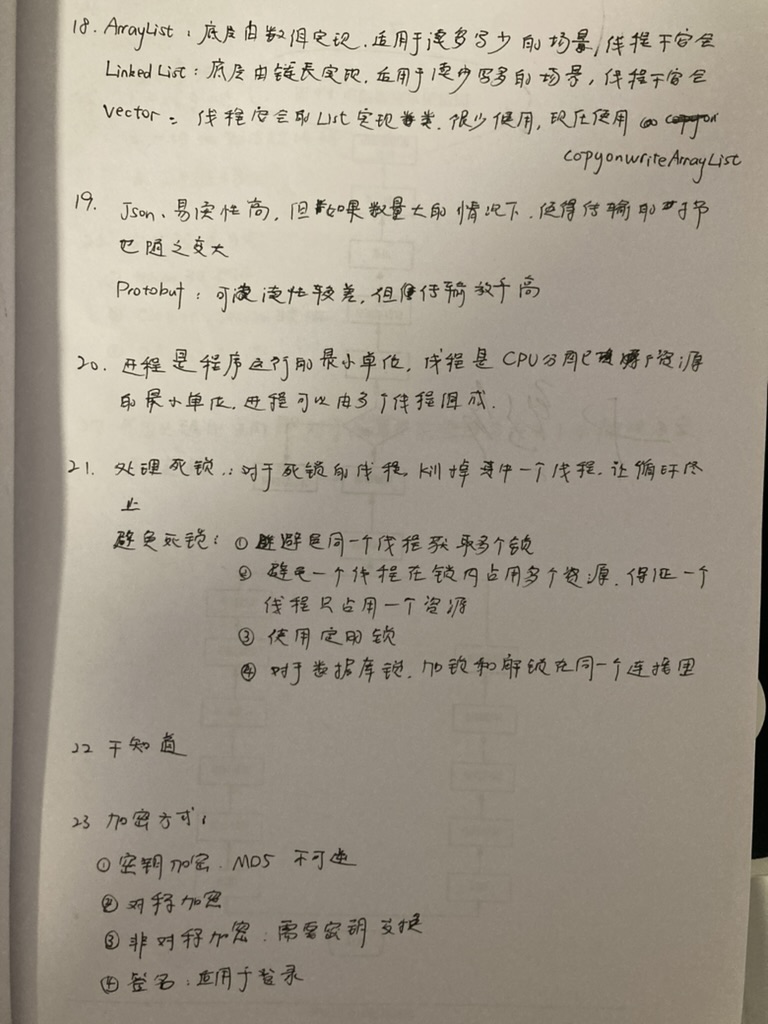 18. ArrayList：底层由数组实现，适用于读多写少的场景，线程不安全
LinkedList：底层由链表实现，适用于读少写多的场景，线程不安全
Vector： 线程安全的List实现类，很少使用，现在使用
copyonwriteArrayList
19. Json、易读性高，但如果数量大的情况下，使得传输的字节
也随之变大
Protobuf：可读性较差，但传输效率高
20. 进程是程序运行的最小单位，线程是CPU分配资源
的最小单位，进程可以由多个线程组成.
21. 处理死锁：对于死锁的线程，kill掉其中一个线程，让循环终
止
避免死锁：①避免同一个线程获取多个锁
②避免一个线程在锁内占用多个资源，保证一个
线程只占用一个资源
③使用定时锁
④对于数据库锁，加锁和解锁在同一个连接里
22 不知道
23 加密方式：
①密钥加密. MD5 不可逆
②对称加密
③非对称加密：需要密钥交换
④签名：适用于登录